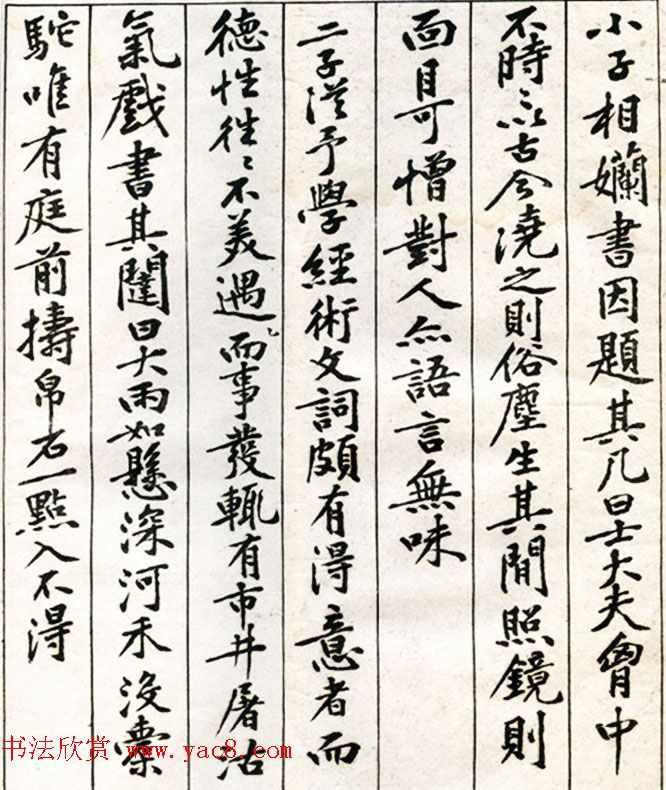 小子相嬾書因題其几曰士大夫胷中
不時〻以古今澆之則俗塵生其間照鏡則
面目可憎對人亦語言無味
二子從予學經術文詞頗有得意者而
德性往〻不美遇而事發輒有市井屠沽
氣戲書其闥曰大雨如懸深河禾没橐
駝唯有庭前擣帛石一點入不得
书法欣赏 www.yac8.com